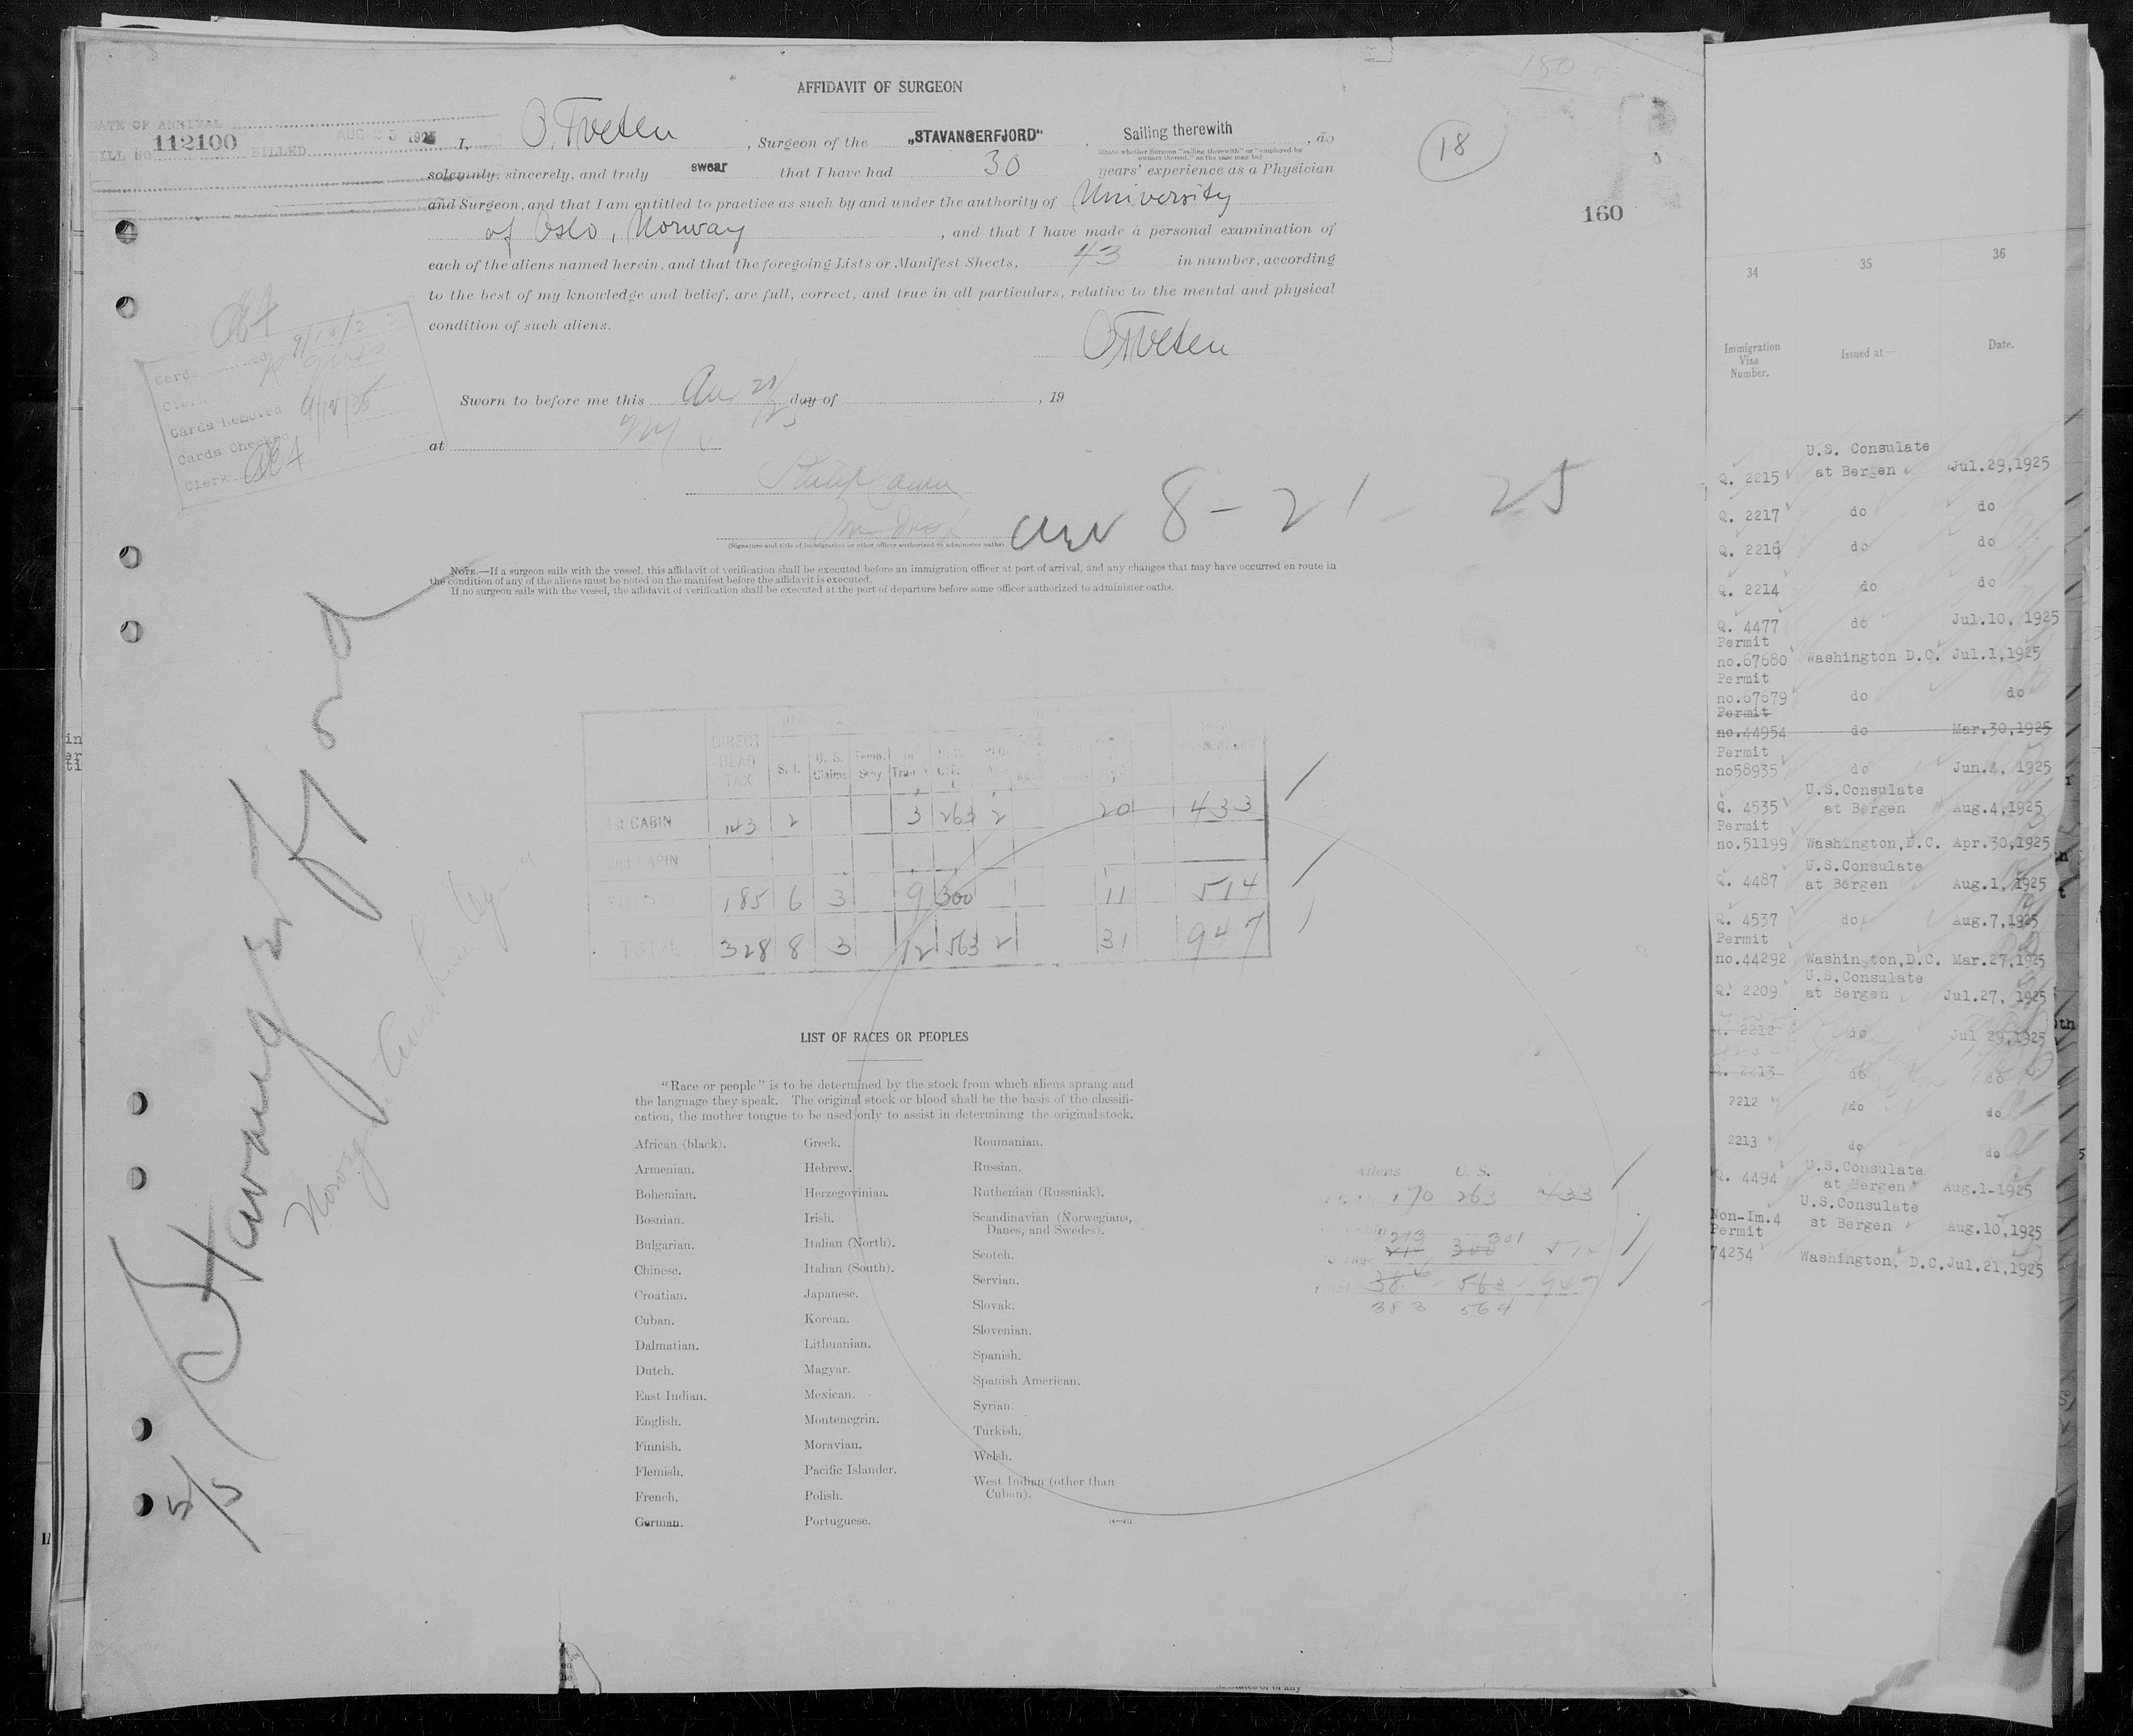 AFFIDAVIT OF SURGEON
180
DATE OF ARRIVAL
BILL NO. 112100 BILLED AUG 23 1925
I, O. Tveten, Surgeon of the „STAVANGERFJORD“, Sailing therewith, do
(State whether Surgeon "sailing therewith" or "employed by
owners thereof," as the case may be)
18
solemnly, sincerely, and truly swear that I have had 30 years' experience as a Physician
and Surgeon, and that I am entitled to practice as such by and under the authority of University
160
of Oslo, Norway, and that I have made a personal examination of
each of the aliens named herein, and that the foregoing Lists or Manifest Sheets, 43 in number, according
to the best of my knowledge and belief, are full, correct, and true in all particulars, relative to the mental and physical
condition of such aliens.
O Tveten
Cards
Cards Removed
Cards Checked
Clerk
Sworn to before me this day of , 19
at
arr 8-21-25
(Signature and title of immigration or other officer authorized to administer oaths)
NOTE.—If a surgeon sails with the vessel, this affidavit of verification shall be executed before an immigration officer at port of arrival, and any changes that may have occurred en route in
the condition of any of the aliens must be noted on the manifest before the affidavit is executed.
If no surgeon sails with the vessel, the affidavit of verification shall be executed at the port of departure before some officer authorized to administer oaths.
Stavangerfjord
DIRECT HEAD TAX S. I. U. S. Claims
1st CABIN 143 2 3 263 2 20 433
2nd CABIN
185 6 3 9 300 11 514
TOTAL 328 8 3 12 563 2 31 947
LIST OF RACES OR PEOPLES
"Race or people" is to be determined by the stock from which aliens sprang and
the language they speak. The original stock or blood shall be the basis of the classifi-
cation, the mother tongue to be used only to assist in determining the original stock.
African (black).
Armenian.
Bohemian.
Bosnian.
Bulgarian.
Chinese.
Croatian.
Cuban.
Dalmatian.
Dutch.
East Indian.
English.
Finnish.
Flemish.
French.
German.
Greek.
Hebrew.
Herzegovinian.
Irish.
Italian (North).
Italian (South).
Japanese.
Korean.
Lithuanian.
Magyar.
Mexican.
Montenegrin.
Moravian.
Pacific Islander.
Polish.
Portuguese.
Roumanian.
Russian.
Ruthenian (Russniak).
Scandinavian (Norwegians,
Danes, and Swedes).
Scotch.
Servian.
Slovak.
Slovenian.
Spanish.
Spanish American.
Syrian.
Turkish.
Welsh.
West Indian (other than
Cuban).
Aliens U. S.
170 263 433
213 301
300 514
563 947
383 564
34 35 36
Immigration
Visa
Number.
Issued at—
Date.
U.S. Consulate
Q. 2215 at Bergen Jul.29,1925
Q. 2217 do do
Q. 2216 do do
Q. 2214 do do
Q. 4477 do Jul.10, 1925
Permit
no.67680 Washington D.C. Jul.1,1925
Permit
no.67679 do do
Permit
no.44954 do Mar.30,1925
Permit
no58935 do Jun.4, 1925
U.S.Consulate
Q. 4535 at Bergen Aug.4,1925
Permit
no.51199 Washington,D.C. Apr.30,1925
U.S.Consulate
Q. 4487 at Bergen Aug.1, 1925
Q. 4537 do Aug.7,1925
Permit
no.44292 Washington,D.C. Mar.27,1925
U.S.Consulate
Q. 2209 at Bergen Jul.27, 1925
Q. 2212 do Jul 29,1925
Q. 2213 do do
2212 do do
2213 do do
U.S.Consulate
Q. 4494 at Bergen Aug.1-1925
U.S.Consulate
Non-Im.4 st Bergen Aug.10,1925
Permit
74234 Washington, D.C. Jul.21,1925